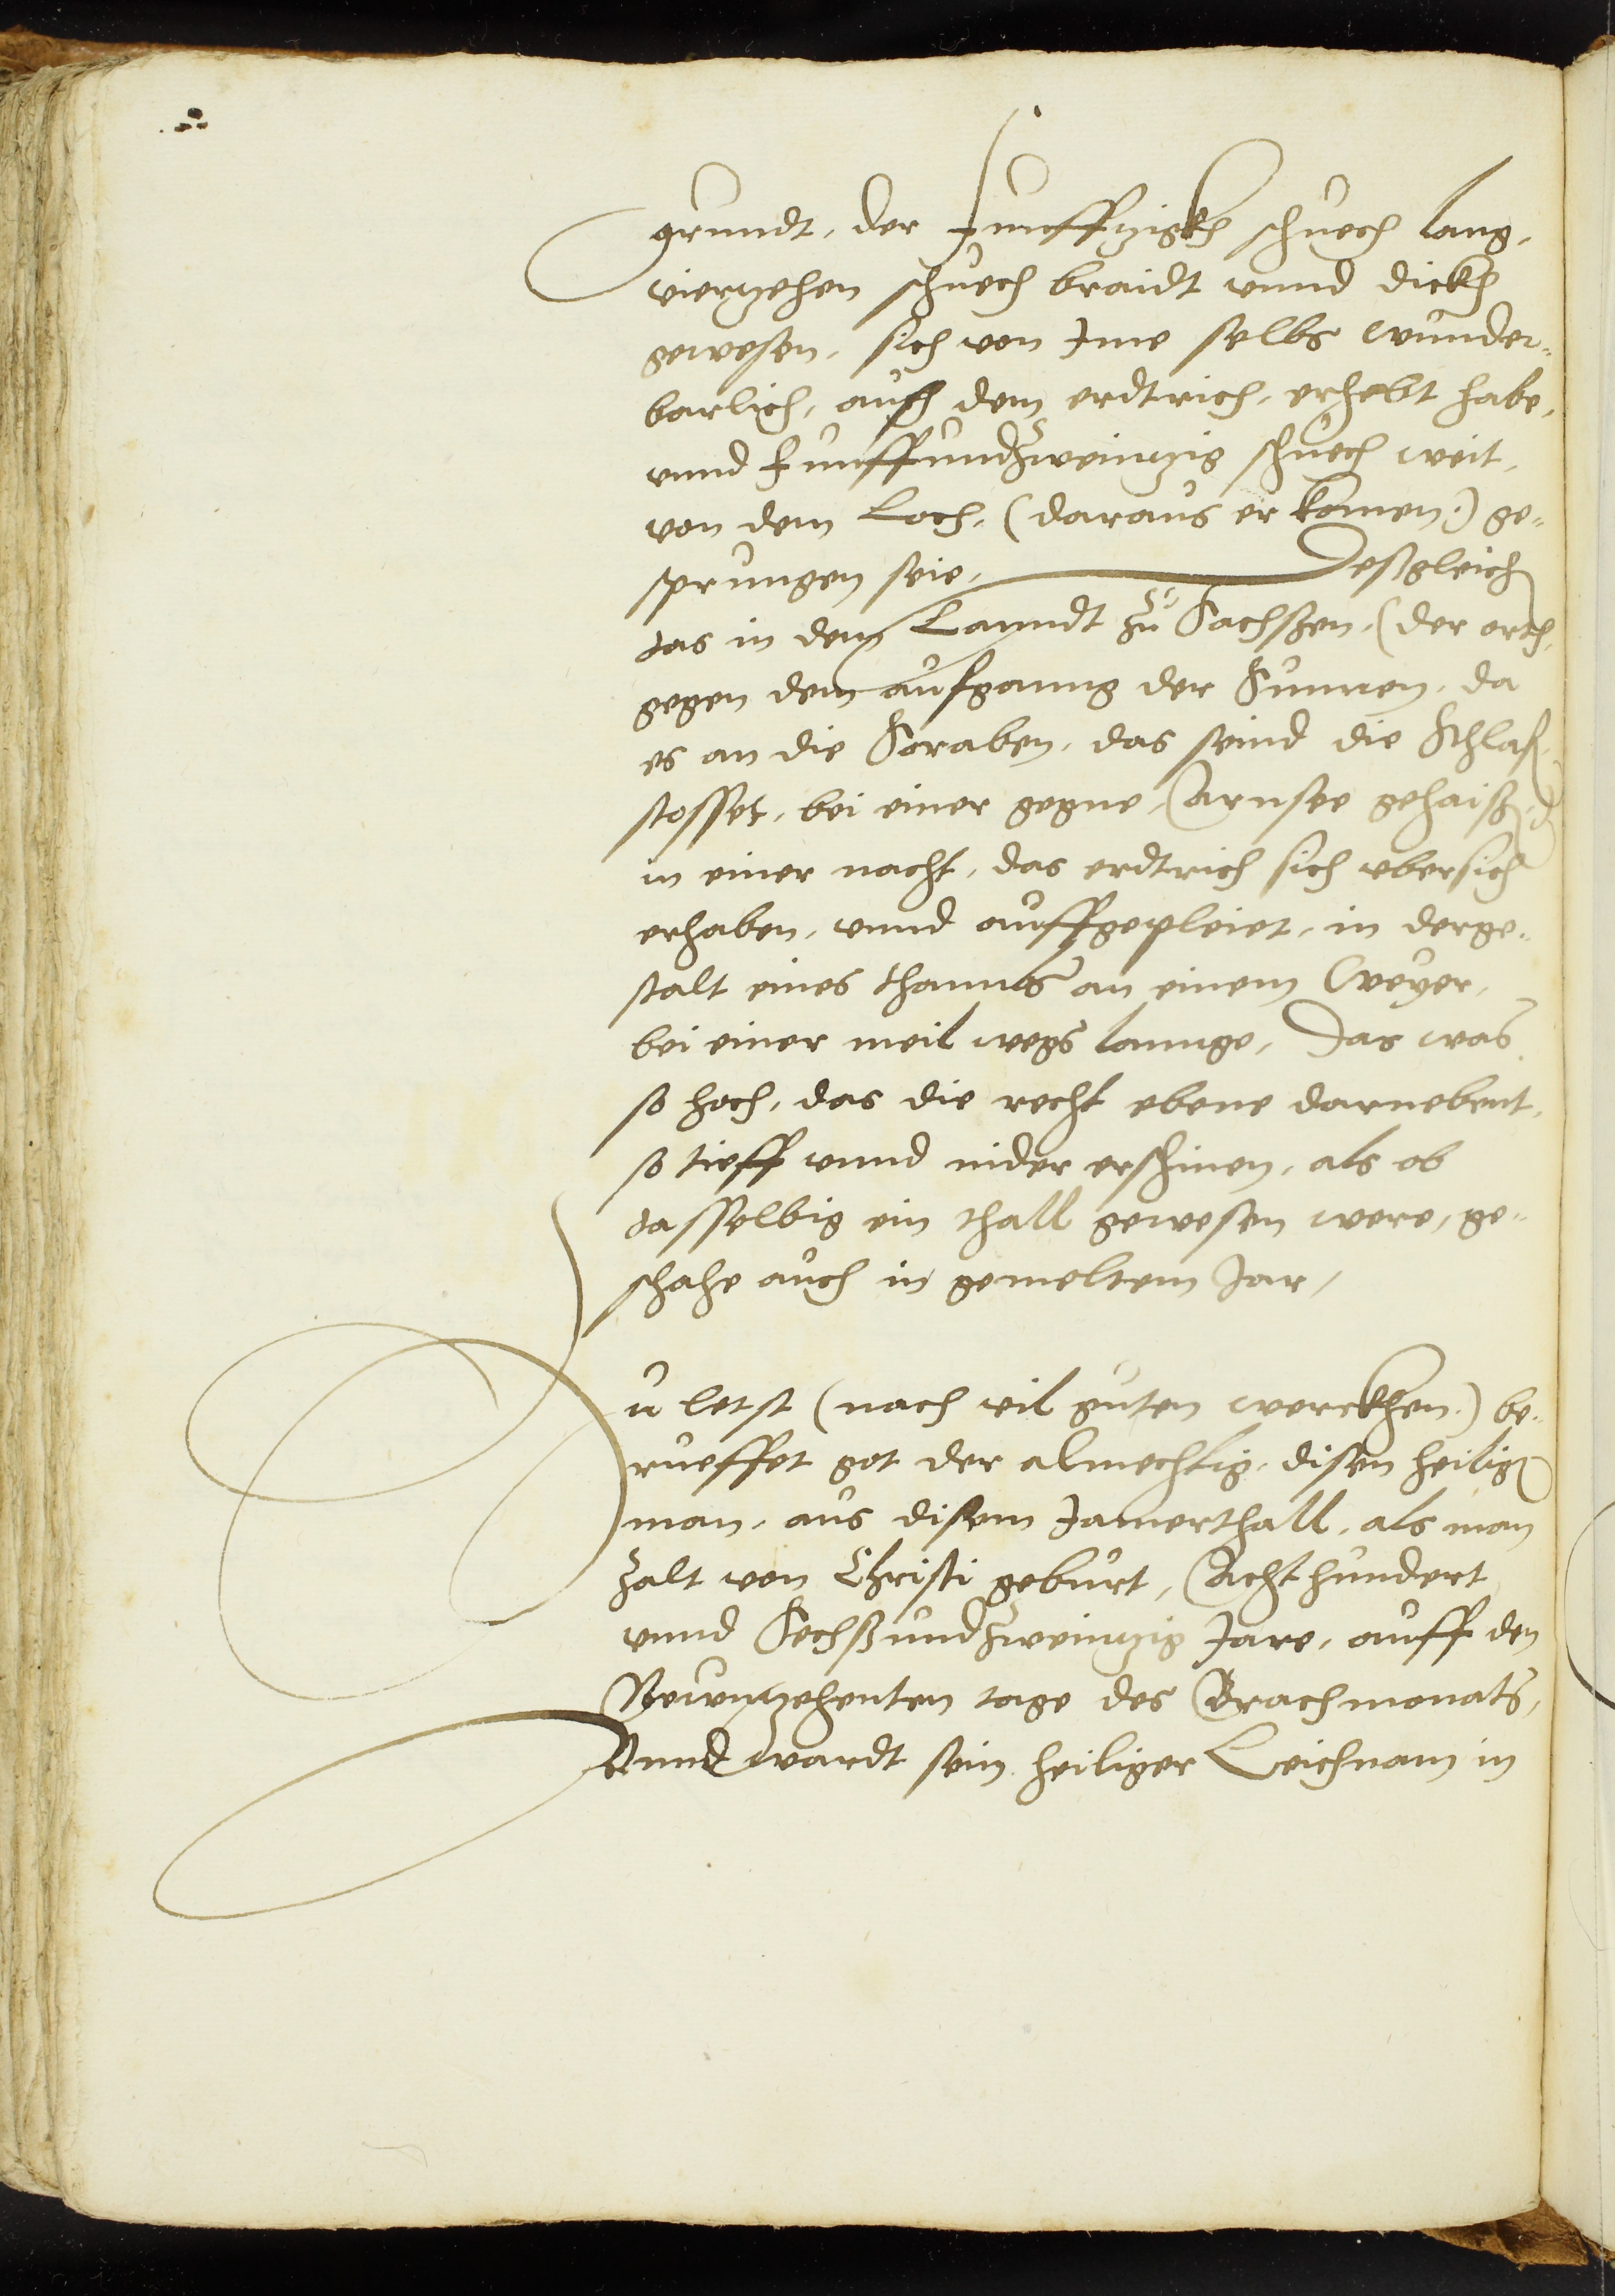 grundt, der funffzigkh schuech lang,
vierzehen schuech braidt vnnd dickh
gewesen, sich von Ime selbs wunder¬
barlich, aus dem erdtrich, erhebt habe,
vnnd funffundzweintzig schuech weit,
von dem Loch, (daraus er komen:) ge¬
sprungen seie, Deßgleich
das in dem Lanndt zu Sachßen, (der orth,
gegen dem aufganng der Sunnen, da
es an die Soraben, das seind die Schlafen,
stosset, bei einer gegne, Arnsee gehaißen,)
in einer nacht, das erdtrich sich vbersich
erhaben, vnnd auffgepleiet, in derge¬
stalt eines thamms an einem Weyer,
bei einer meil wegs lannge, Das was
so hoch, das die recht ebene darnebent,
so tieff vnnd nider erschinen, als ob
dasselbig ein thall gewesen were, ge¬
schahe auch in gemeltem Jar,
Zu letst (nach vil guten werckhen:) be¬
rueffet got der almechtig, disen heiligen
man, aus disem Jamerthall, als man
zalt von Christi geburt, Achthundert
vnnd Sechßundzweintzig Jare, auff den
Newntzehenten tage des Brachmonats,
Vnnd wardt sein heiliger Leichnam in